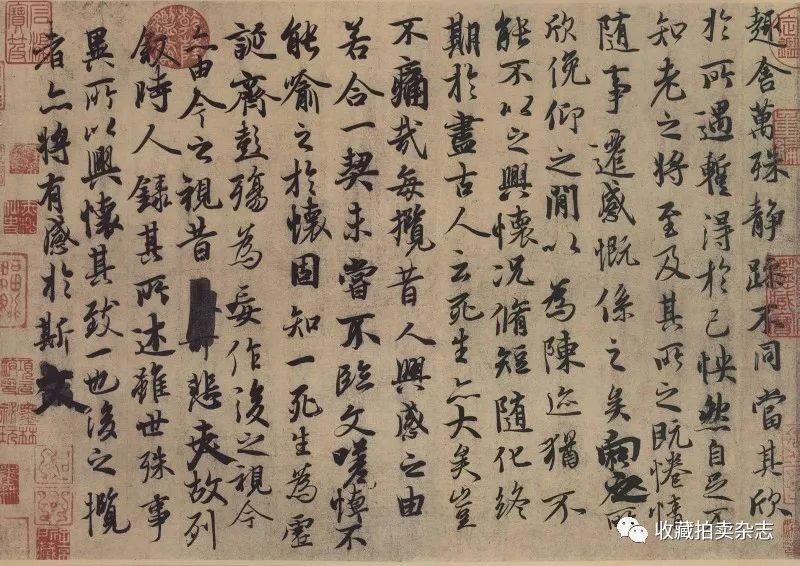 趣舍萬殊靜躁不同當其欣
於所遇蹔得於己怏然自足不
知老之將至及其所之既惓情
隨事遷感慨係之矣向之所
欣俛仰之閒以為陳迹猶不
能不以之興懷況脩短隨化終
期於盡古人云死生亦大矣豈
不痛哉每攬昔人興感之由
若合一契未嘗不臨文嗟悼不
能喻之於懷固知一死生為虛
誕齊彭殤為妄作後之視今
亦由今之視昔悲夫故列
敘時人錄其所述雖世殊事
異所以興懷其致一也後之攬
者亦將有感於斯文
收藏拍卖杂志